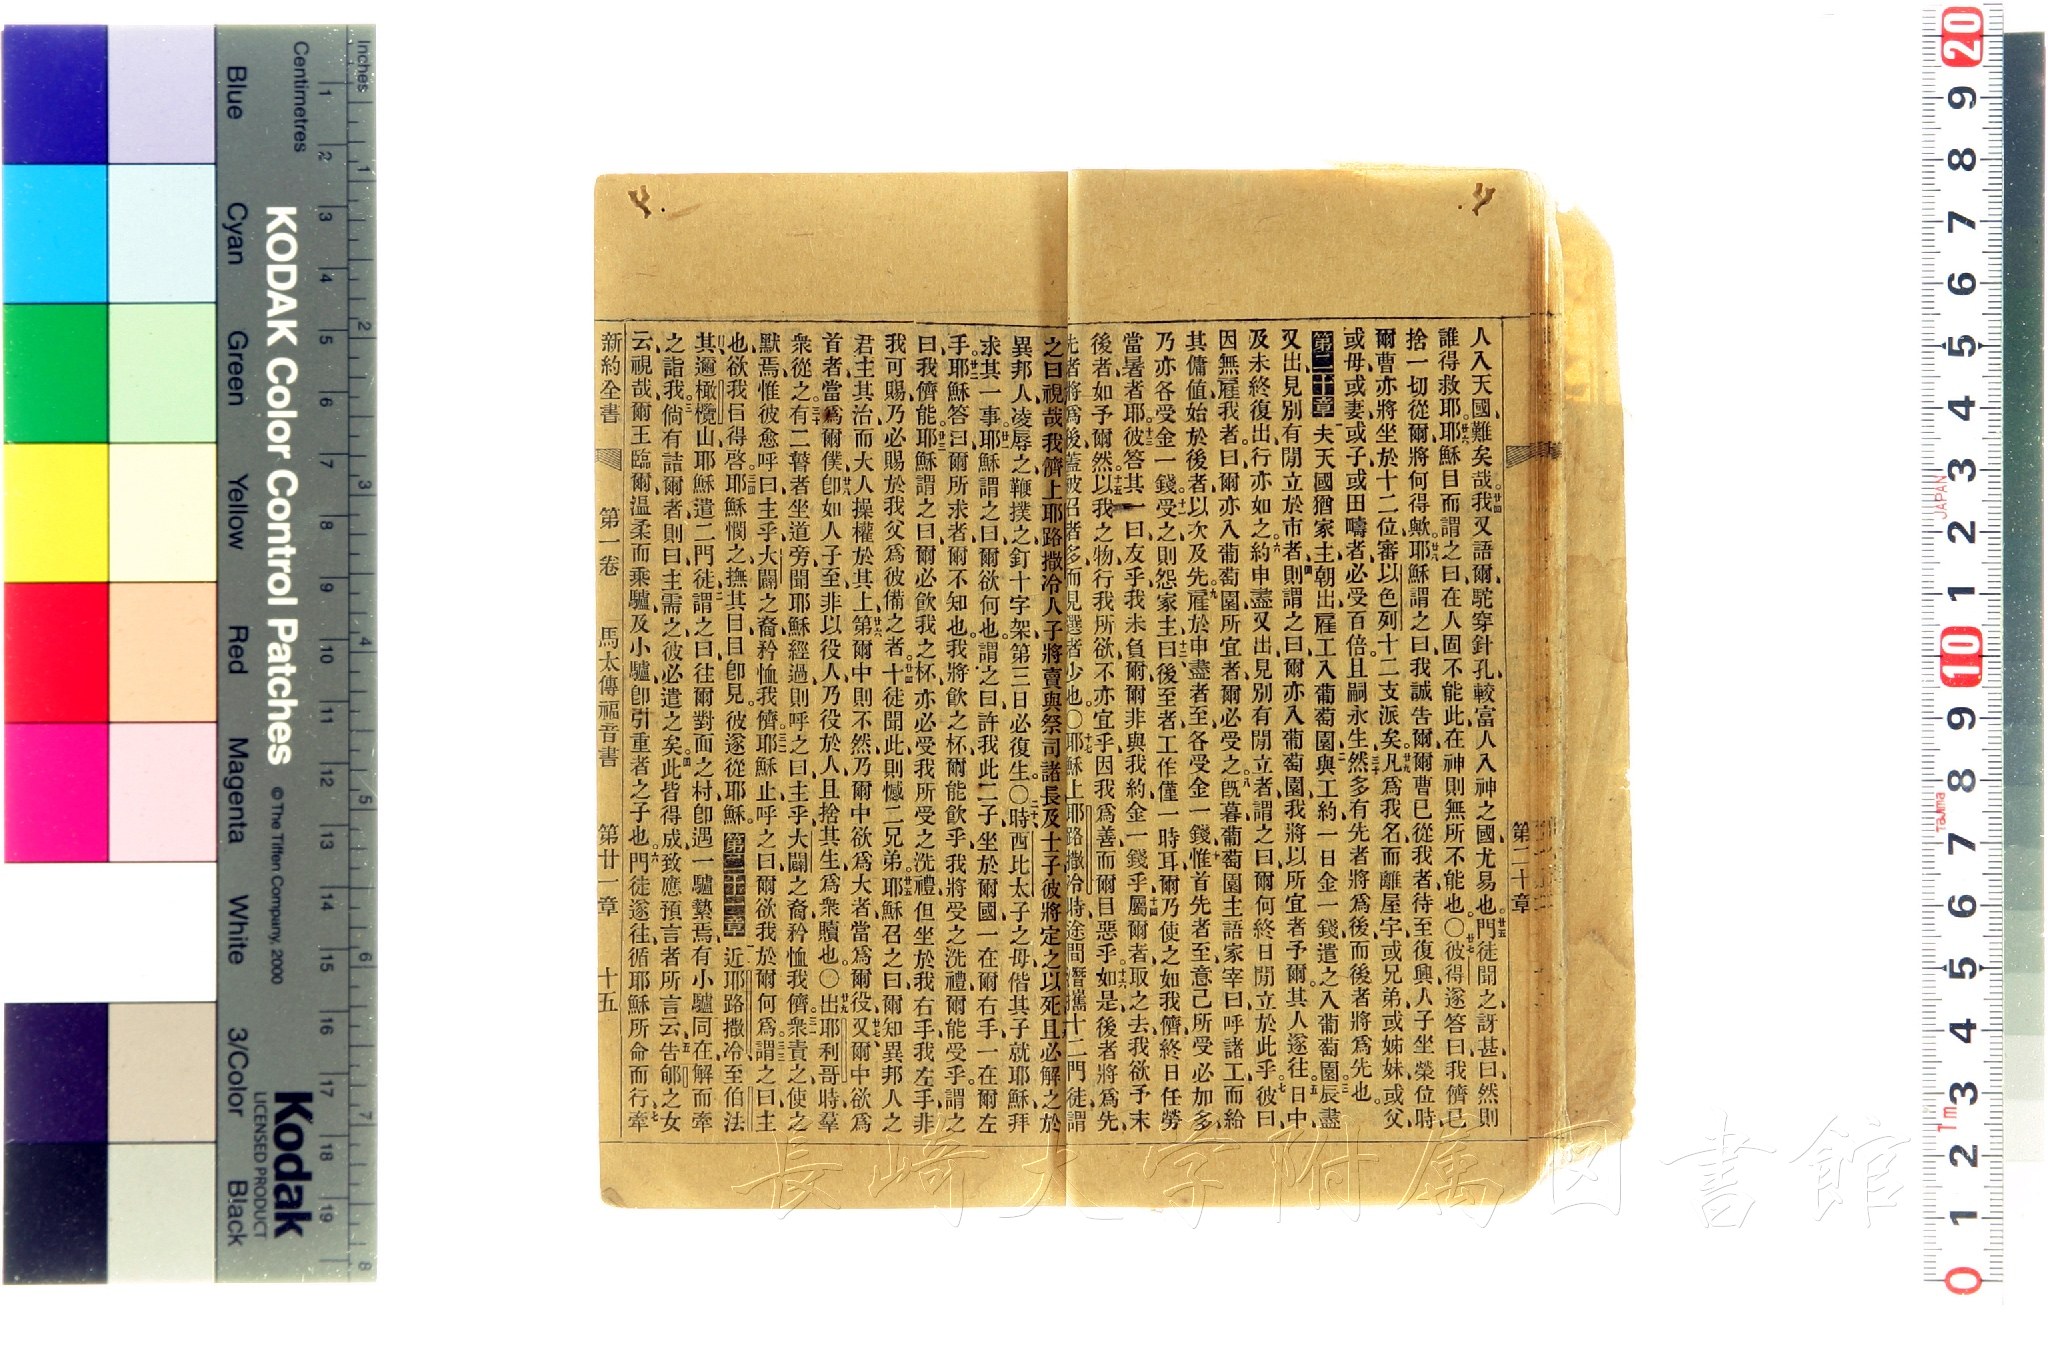 第二十章
人入天國難矣哉我又語爾駝穿針孔較富人入神之國尤易也門徒聞之訝甚曰然則
誰得救耶耶穌目而謂之曰在人固不能此在神則無所不能也〇彼得遂答曰我儕已
捨一切從爾將何得歟耶穌謂之曰我誠告爾爾曹已從我者待至復興人子坐榮位時
爾曹亦將坐於十二位審以色列十二支派矣凡爲我名而離屋宇或兄弟或姊妹或父
或母或妻或子或田疇者必受百倍且嗣永生然多有先者將爲後而後者將爲先也
第二十章 夫天國猶家主朝出雇工入葡萄園與工約一日金一錢遣之入葡萄園辰盡
又出見別有閒立於市者則謂之曰爾亦入葡萄園我將以所宜者予爾其人遂往日中
及未終復出行亦如之約申盡又出見別有閒立者謂之曰爾何終日閒立於此乎彼曰
因無雇我者曰爾亦入葡萄園所宜者爾必受之旣暮葡萄園主語家宰曰呼諸工而給
其傭值始於後者以次及先雇於申盡者至各受金一錢惟首先者至意己所受必加多
乃亦各受金一錢受之則怨家主曰後至者工作僅一時耳爾乃使之如我儕終日任勞
當暑者耶彼答其一曰友乎我未負爾爾非與我約金一錢乎屬爾者取之去我欲予末
後者如予爾然以我之物行我所欲不亦宜乎因我爲善而爾目惡乎如是後者將爲先
先者將爲後蓋被召者多而見選者少也〇耶穌上耶路撒冷時途間潛攜十二門徒謂
之曰視哉我儕上耶路撒冷人子將賣與祭司諸長及士子彼將定之以死且必解之於
異邦人凌辱之鞭撲之釘十字架第三日必復生〇時西比太子之母偕其子就耶穌拜
求其一事耶穌謂之曰爾欲何也謂之曰許我此二子坐於爾國一在爾右手一在爾左
手耶穌答曰爾所求者爾不知也我將飲之杯爾能飲乎我將受之洗禮爾能受乎謂之
曰我儕能耶穌謂之曰爾必飲我之杯亦必受我所受之洗禮但坐於我右手我左手非
我可賜乃必賜於我父爲彼備之者十徒聞此則憾二兄弟耶穌召之曰爾知異邦人之
君主其治而大人操權於其上第爾中則不然乃爾中欲爲大者當爲爾役又爾中欲爲
首者當爲爾僕卽如人子至非以役人乃役於人且捨其生爲衆贖也〇出耶利哥時羣
衆從之有二瞽者坐道旁聞耶穌經過則呼之曰主乎大闢之裔矜恤我儕衆責之使之
默焉惟彼愈呼曰主乎大闢之裔矜恤我儕耶穌止呼之曰爾欲我於爾何爲謂之曰主
也欲我目得啓耶穌憫之撫其目目卽見彼遂從耶穌 第二十一章 近耶路撒冷至伯法
其邇橄欖山耶穌遣二門徒謂之曰往爾對面之村卽遇一驢縶焉有小驢同在解而牽
之詣我倘有詰爾者則曰主需之彼必遣之矣此皆得成致應預言者所言云吿郇之女
云視哉爾王臨爾温柔而乘驢及小驢卽引重者之子也門徒遂往循耶穌所命而行牽
新約全書 第一卷 馬太傳福音書 第廿一章 十五
長崎大学附属図書館
Inches
Centimetres
KODAK Color Control Patches
© The Tiffen Company, 2000
Kodak
LICENSED PRODUCT
Blue
Cyan
Green
Yellow
Red
Magenta
White
3/Color
Black
1 2 3 4 5 6 7 8 9 10 11 12 13 14 15 16 17 18 19
1 2 3 4 5 6 7 8
20 9 8 7 6 5 4 3 2 1 10 9 8 7 6 5 4 3 2 1 0
JAPAN
Tajima
Tm